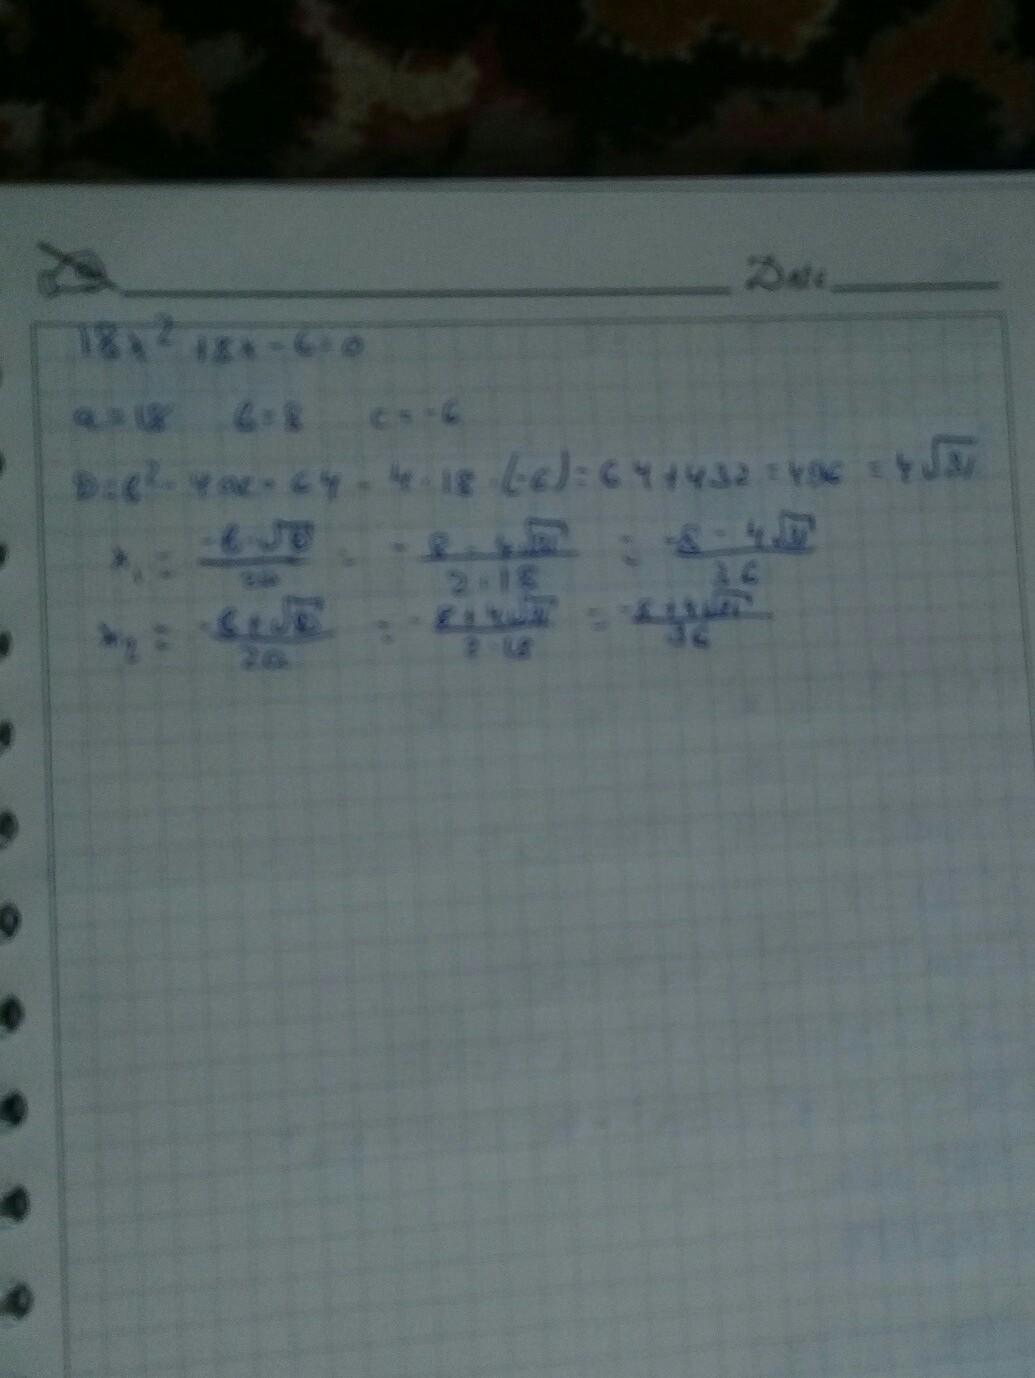 Date
18x² + 8x - 6 = 0
a = 18 b = 8 c = -6
D = b² - 4ac = 64 - 4 · 18 · (-6) = 64 + 432 = 496 = 4√31
x₁ = (-b - √D)/2a = (-8 - 4√31)/(2 · 18) = (-8 - 4√31)/36
x₂ = (-b + √D)/2a = (-8 + 4√31)/(2 · 18) = (-8 + 4√31)/36